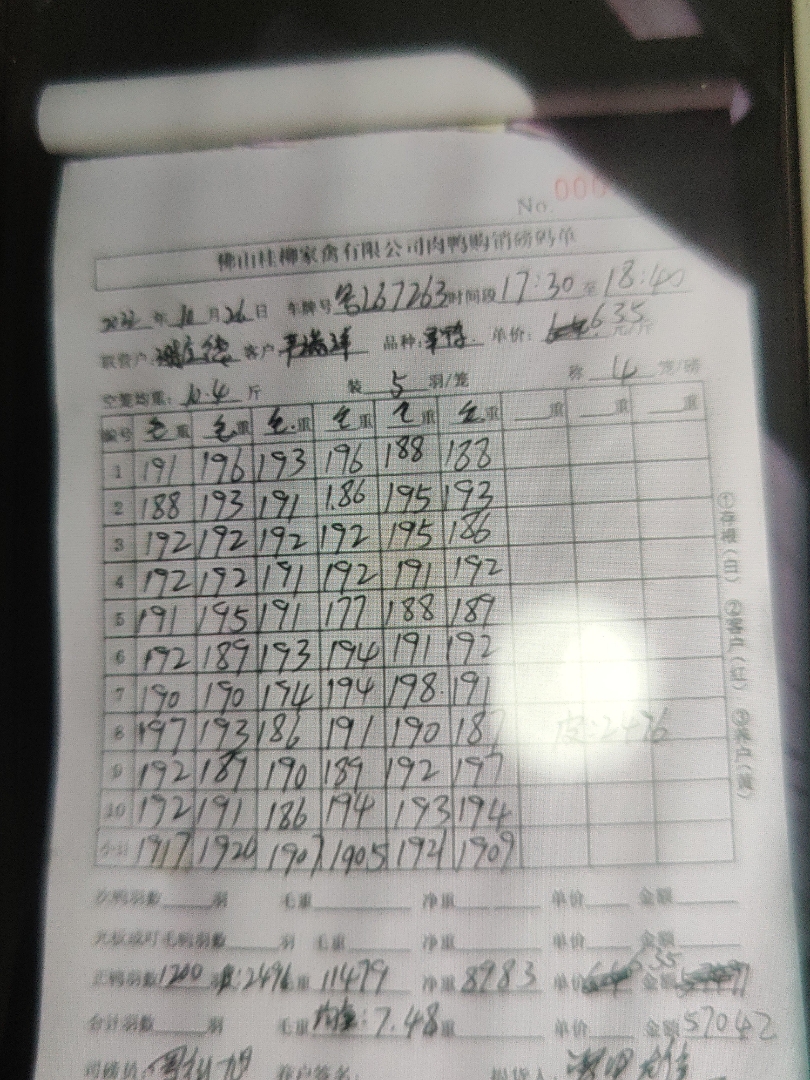 No. 000
佛山桂柳家禽有限公司肉鸭购销磅码单
年 月 26 日 车牌号 L67263 时间段 17:30 至 18:40
联营户: 客户 品种: 单价: 6.35 元/斤
空笼均重: 10.4 斤 装 5 羽/笼 称 4 笼/磅
编号 毛重 毛重 毛重 毛重 毛重 毛重 重 重 重
1 191 196 193 196 188 188
2 188 193 191 186 195 193
3 192 192 192 192 195 186
4 192 192 191 192 191 192
5 191 195 191 177 188 189
6 192 189 193 194 191 192
7 190 190 194 194 198 191
8 197 193 186 191 190 187 皮:2476
9 192 189 190 189 192 197
10 192 191 186 194 193 194
小计 1917 1920 1907 1905 1921 1909
①存根(白) ②客户(红) ③养户(黄)
次鸭羽数 羽 毛重 净重 单价 金额
光板或叮毛鸭羽数 羽 毛重 净重 单价 金额
正鸭羽数 1200 皮:2496 重 11479 净重 8983 单价 6.35 金额
合计羽数 羽 毛重 均重:7.48 重 单价 金额 57042
司磅员: 养户签名: 提货人: